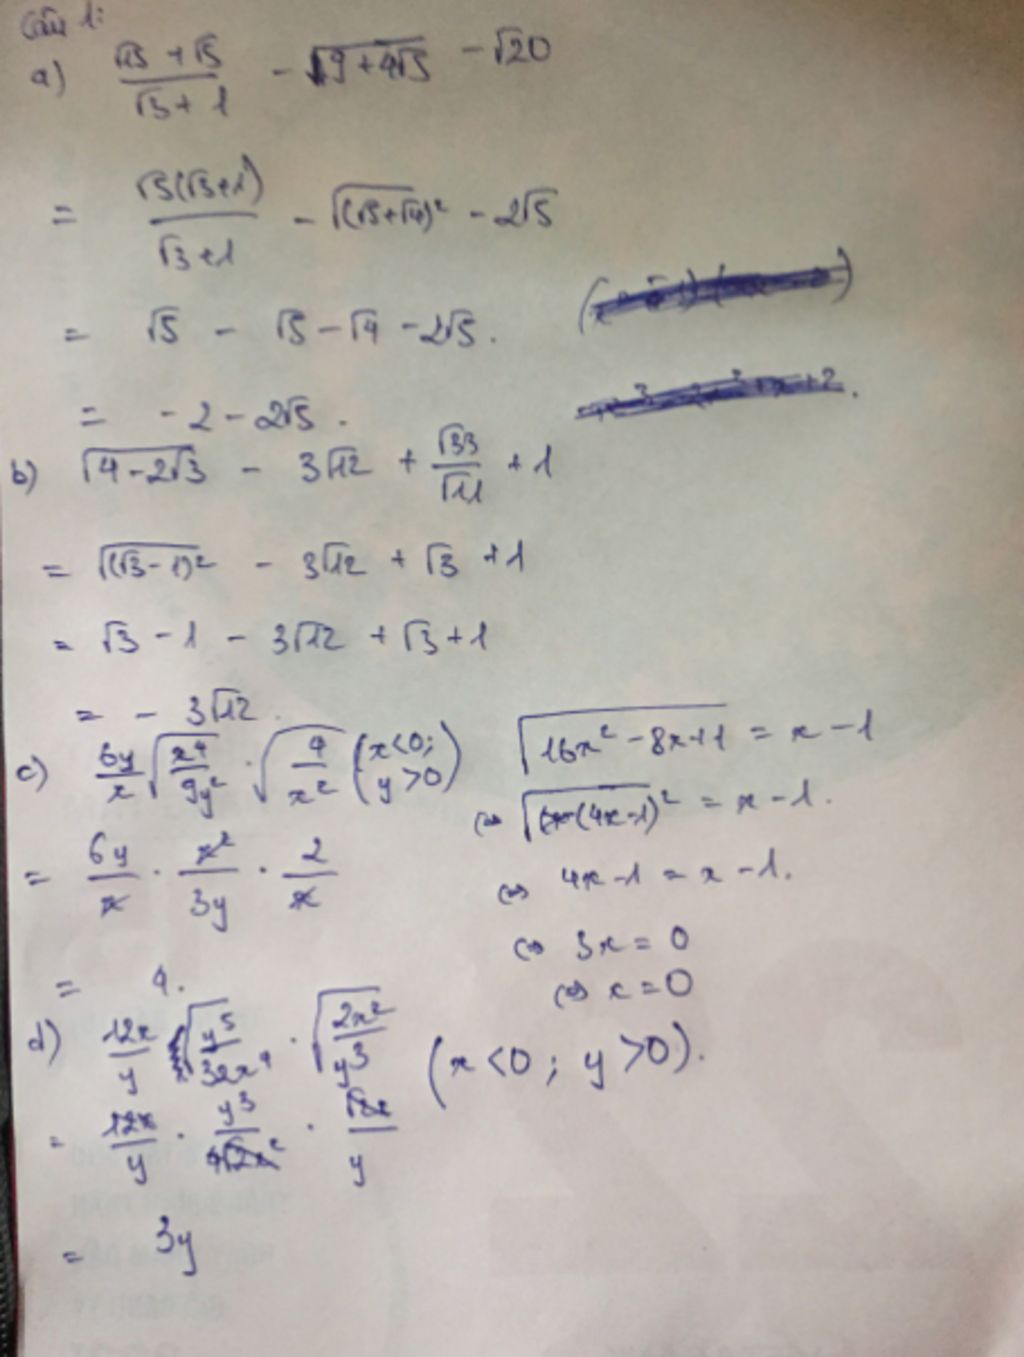 Câu 1:
a) (√15 + √5)/(√3 + 1) - √(9+4√5) - √20
= √5(√3+1)/(√3+1) - √((√5+√4)²) - 2√5
= √5 - √5 - √4 - 2√5.
= -2 - 2√5.
b) √(4-2√3) - 3√12 + √33/√11 + 1
= √((√3-1)²) - 3√12 + √3 + 1
= √3 - 1 - 3√12 + √3 + 1
= - 3√12.
c) 6y/x √(x⁴/9y²) · √(4/x²) (x<0; y>0)
= 6y/x · x²/3y · 2/x
= 4.
√(16x² - 8x+1) = x - 1
⇔ √((4x-1)²) = x - 1.
⇔ 4x - 1 = x - 1.
⇔ 3x = 0
⇔ x = 0
d) 12x/y √(y⁵/32x⁴) · √(2x²/y³) (x <0 ; y >0).
= 12x/y · y³/
= 3y